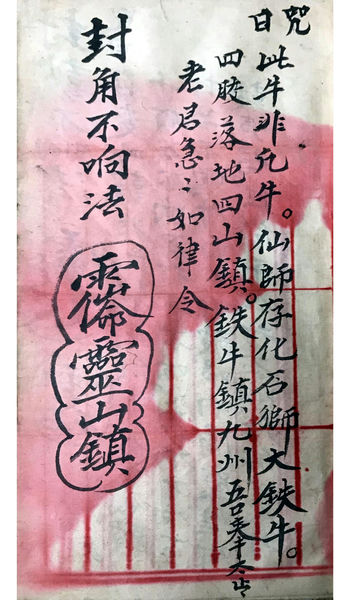 咒曰
此牛非凡牛。仙師存化石獅大鉄牛。
四股落地四山鎮。鉄牛鎮九州吾奉太上
老君急〻如律令
封角不响法
靈山鎮